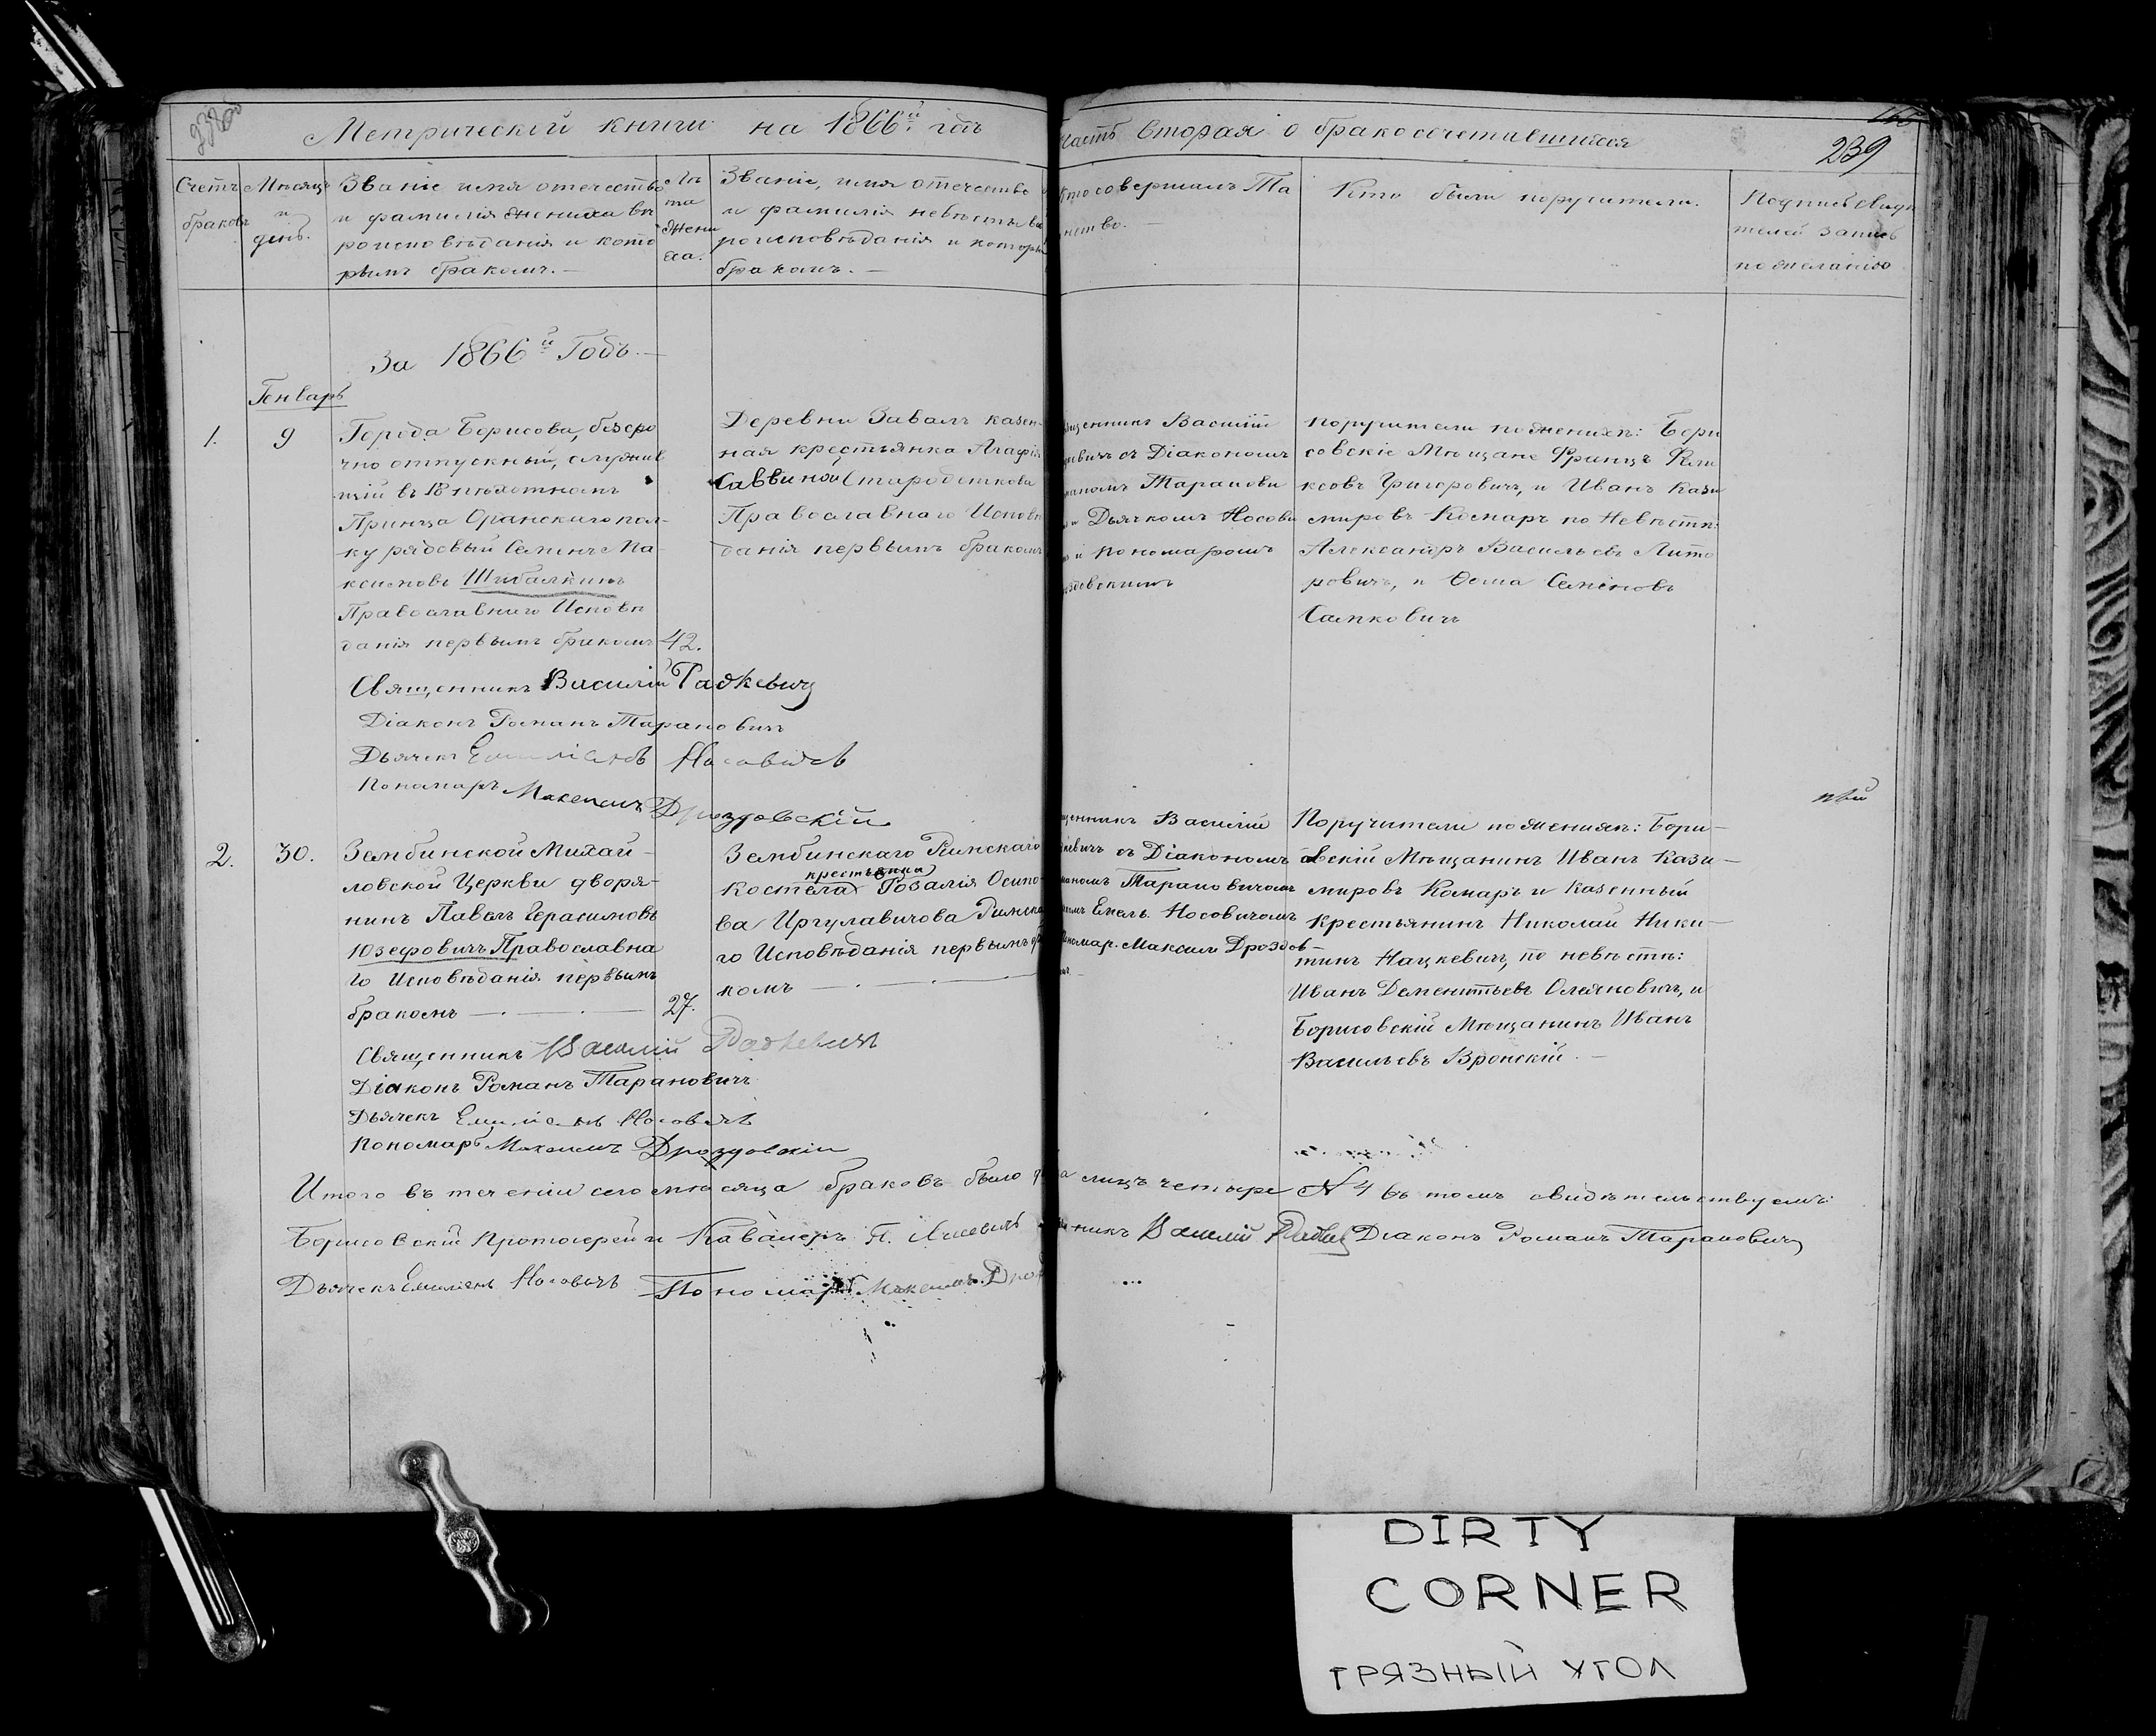 Метрической книги на 1866й годъ
часть вторая о бракосочетавшихся
239
Счетъ браковъ
Мѣсяцъ и день.
Званіе имя отечество
и фамилія жениха вѣ
роисповѣданія и кото
рымъ бракомъ. —
Лѣ
та
жени
ха.
Званіе, имя отечество
и фамилія невѣсты вѣ
роисповѣданія и которы
бракомъ. —
Кто совершалъ Та
инство. —
Кто были поручители.
Подпись Свидѣ
телей запись
по желанію
За 1866й Годъ. —
Генварь
1.
9
Города Борисова, безсро
чно отпускный, служив
шій въ 18 пѣхотномъ
Принца Оранскаго пол-
ку рядовый Семенъ Ма-
ксимовъ Шибалкинъ
Православнаго Исповѣ
данія первымъ бракомъ
42.
Деревни Завалъ казен-
ная крестьянка Агафія
Саввина Стародѣткова
Православнаго Исповѣ
данія первымъ бракомъ
щенникъ Василій
кевичъ съ Діакономъ
маномъ Таранови
и Дьячкомъ Носови
и Пономаромъ
здовскимъ
поручители по женихѣ: Бори
совскіе Мѣщане Францъ Фели
ксовъ Григоровичъ, и Иванъ Кази
мировъ Комаръ по Невѣстѣ:
Александръ Васильевъ Лито
ровичъ, и Ѳома Семеновъ
Сапковичъ
Священникъ Василій Радкевичъ
Діаконъ Романъ Тарановичъ
Дьячекъ Емиліанъ Носовичъ
Пономаръ Максимъ Дроздовскій
2.
30.
Зембинской Михай-
ловской Церкви дворя-
нинъ Павелъ Герасимовъ
Юзефовичъ Православна
го Исповѣданія первымъ
бракомъ —
27.
Зембинскаго Римскаго
крестьянка
Костела Розалія Осипо-
ва Иргулавичова Римска
го Исповѣданія первымъ бра
комъ —
щенникъ Василій
кевичъ съ Діакономъ
маномъ Тарановичомъ
Емел. Носовичомъ
Пономар. Максим Дроздов
Поручители по женихѣ: Бори-
совскій Мѣщанинъ Иванъ Кази-
мировъ Комаръ и казенный
крестьянинъ Николай Ники-
тинъ Нацкевичъ, по невѣстѣ:
Иванъ Дементьевъ Олехновичъ, и
Борисовскій Мѣщанинъ Иванъ
Васильевъ Вронскій. —
Священникъ Василій Радкевичъ
Діаконъ Романъ Тарановичъ
Дьячекъ Емиліанъ Носовичъ
Пономаръ Максимъ Дроздовскій
Итого въ теченіи сего мѣсяца браковъ было два лицъ четыре № 4 въ томъ свидѣтельствуемъ:
Борисовскій Протоіерей и Кавалеръ П. никъ Василій Радкевичъ Діаконъ Романъ Тарановичъ
Дьячекъ Емиліанъ Носовичъ Пономаръ Максимъ Дроз
DIRTY
CORNER
ГРЯЗНЫЙ УГОЛ